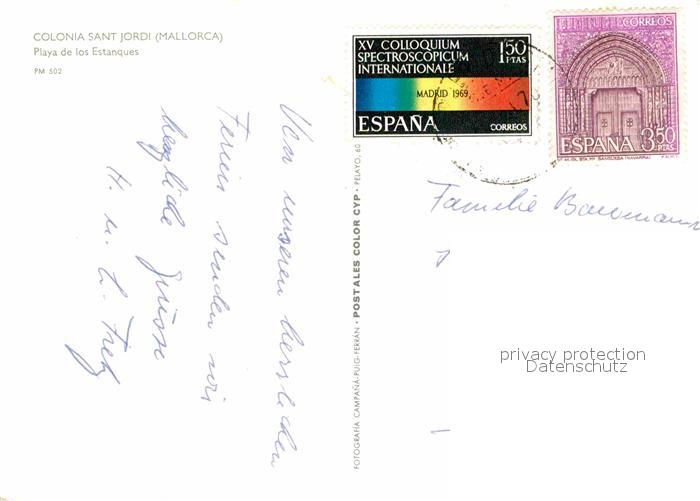 COLONIA SANT JORDI (MALLORCA)
Playa de los Estanques
PM 502
XV COLLOQUIUM
SPECTROSCOPICUM
INTERNATIONALE
1'50
PTAS
MADRID 1969
ESPAÑA
CORREOS
CORREOS
ESPAÑA 3,50
PTAS
Von unseren herrlichen
Ferien senden wir
herzliche Grüsse
H. u. L. Frey
FOTOGRAFÍA CAMPAÑÁ-PUIG-FERRÁN - POSTALES COLOR CYP - PELAYO, 60
Familie Baumann
privacy protection
Datenschutz